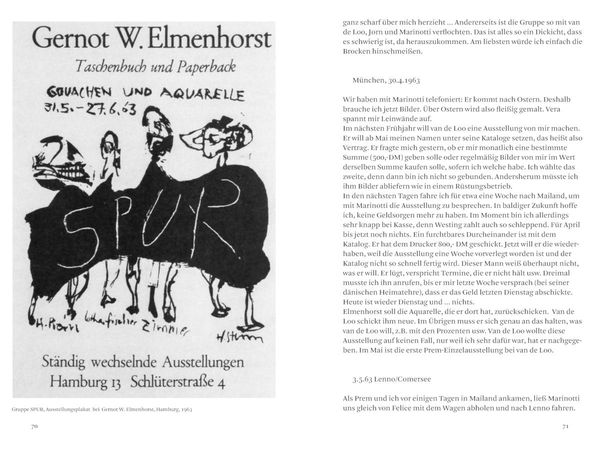 Gernot W. Elmenhorst
Taschenbuch und Paperback
GOUACHEN UND AQUARELLE
31.5.-27.6.63
SPUR
H. Prem
Zimmer
H Sturm
Ständig wechselnde Ausstellungen
Hamburg 13 Schlüterstraße 4
Gruppe SPUR, Ausstellungsplakat bei Gernot W. Elmenhorst, Hamburg, 1963
70
ganz scharf über mich herzieht ... Andererseits ist die Gruppe so mit van
de Loo, Jorn und Marinotti verflochten. Das ist alles so ein Dickicht, dass
es schwierig ist, da herauszukommen. Am liebsten würde ich einfach die
Brocken hinschmeißen.
München, 30.4.1963
Wir haben mit Marinotti telefoniert: Er kommt nach Ostern. Deshalb
brauche ich jetzt Bilder. Über Ostern wird also fleißig gemalt. Vera
spannt mir Leinwände auf.
Im nächsten Frühjahr will van de Loo eine Ausstellung von mir machen.
Er will ab Mai meinen Namen unter seine Kataloge setzen, das heißt also
Vertrag. Er fragte mich gestern, ob er mir monatlich eine bestimmte
Summe (500,-DM) geben solle oder regelmäßig Bilder von mir im Wert
derselben Summe kaufen solle, sofern ich welche habe. Ich wählte das
zweite, denn dann bin ich nicht so gebunden. Andersherum müsste ich
ihm Bilder abliefern wie in einem Rüstungsbetrieb.
In den nächsten Tagen fahre ich für etwa eine Woche nach Mailand, um
mit Marinotti die Ausstellung zu besprechen. In baldiger Zukunft hoffe
ich, keine Geldsorgen mehr zu haben. Im Moment bin ich allerdings
sehr knapp bei Kasse, denn Westing zahlt auch so schleppend. Für April
bis jetzt noch nichts. Ein furchtbares Durcheinander ist mit dem
Katalog. Er hat dem Drucker 800,- DM geschickt. Jetzt will er die wieder-
haben, weil die Ausstellung eine Woche vorverlegt worden ist und der
Katalog nicht so schnell fertig wird. Dieser Mann weiß überhaupt nicht,
was er will. Er lügt, verspricht Termine, die er nicht hält usw. Dreimal
musste ich ihn anrufen, bis er mir letzte Woche versprach (bei seiner
dänischen Heimatehre), dass er das Geld letzten Dienstag abschickte.
Heute ist wieder Dienstag und ... nichts.
Elmenhorst soll die Aquarelle, die er dort hat, zurückschicken. Van de
Loo schickt ihm neue. Im Übrigen muss er sich genau an das halten, was
van de Loo will, z.B. mit den Prozenten usw. Van de Loo wollte diese
Ausstellung auf keinen Fall, nur weil ich sehr dafür war, hat er nachgege-
ben. Im Mai ist die erste Prem-Einzelausstellung bei van de Loo.
3.5.63 Lenno/Comersee
Als Prem und ich vor einigen Tagen in Mailand ankamen, ließ Marinotti
uns gleich von Felice mit dem Wagen abholen und nach Lenno fahren.
71